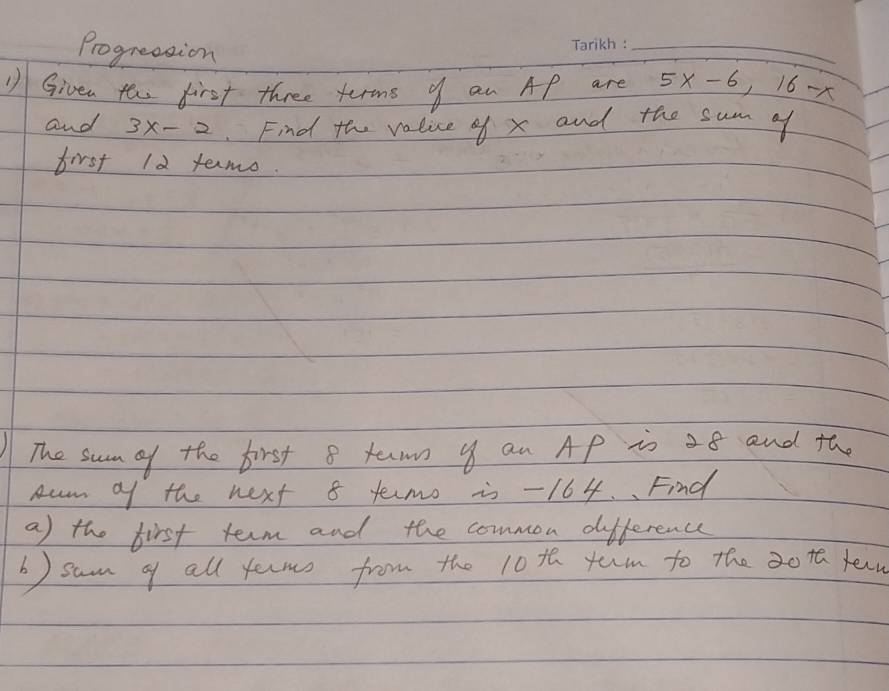 Progression
Tarikh :
1) Given the first three terms of an AP are 5x-6, 16-x
and 3x-2. Find the value of x and the sum of
first 12 terms.
) The sum of the first 8 terms of an AP is 28 and the
sum of the next 8 terms is -164. Find
a) the first term and the common difference
b) sum of all terms from the 10th term to the 20th term